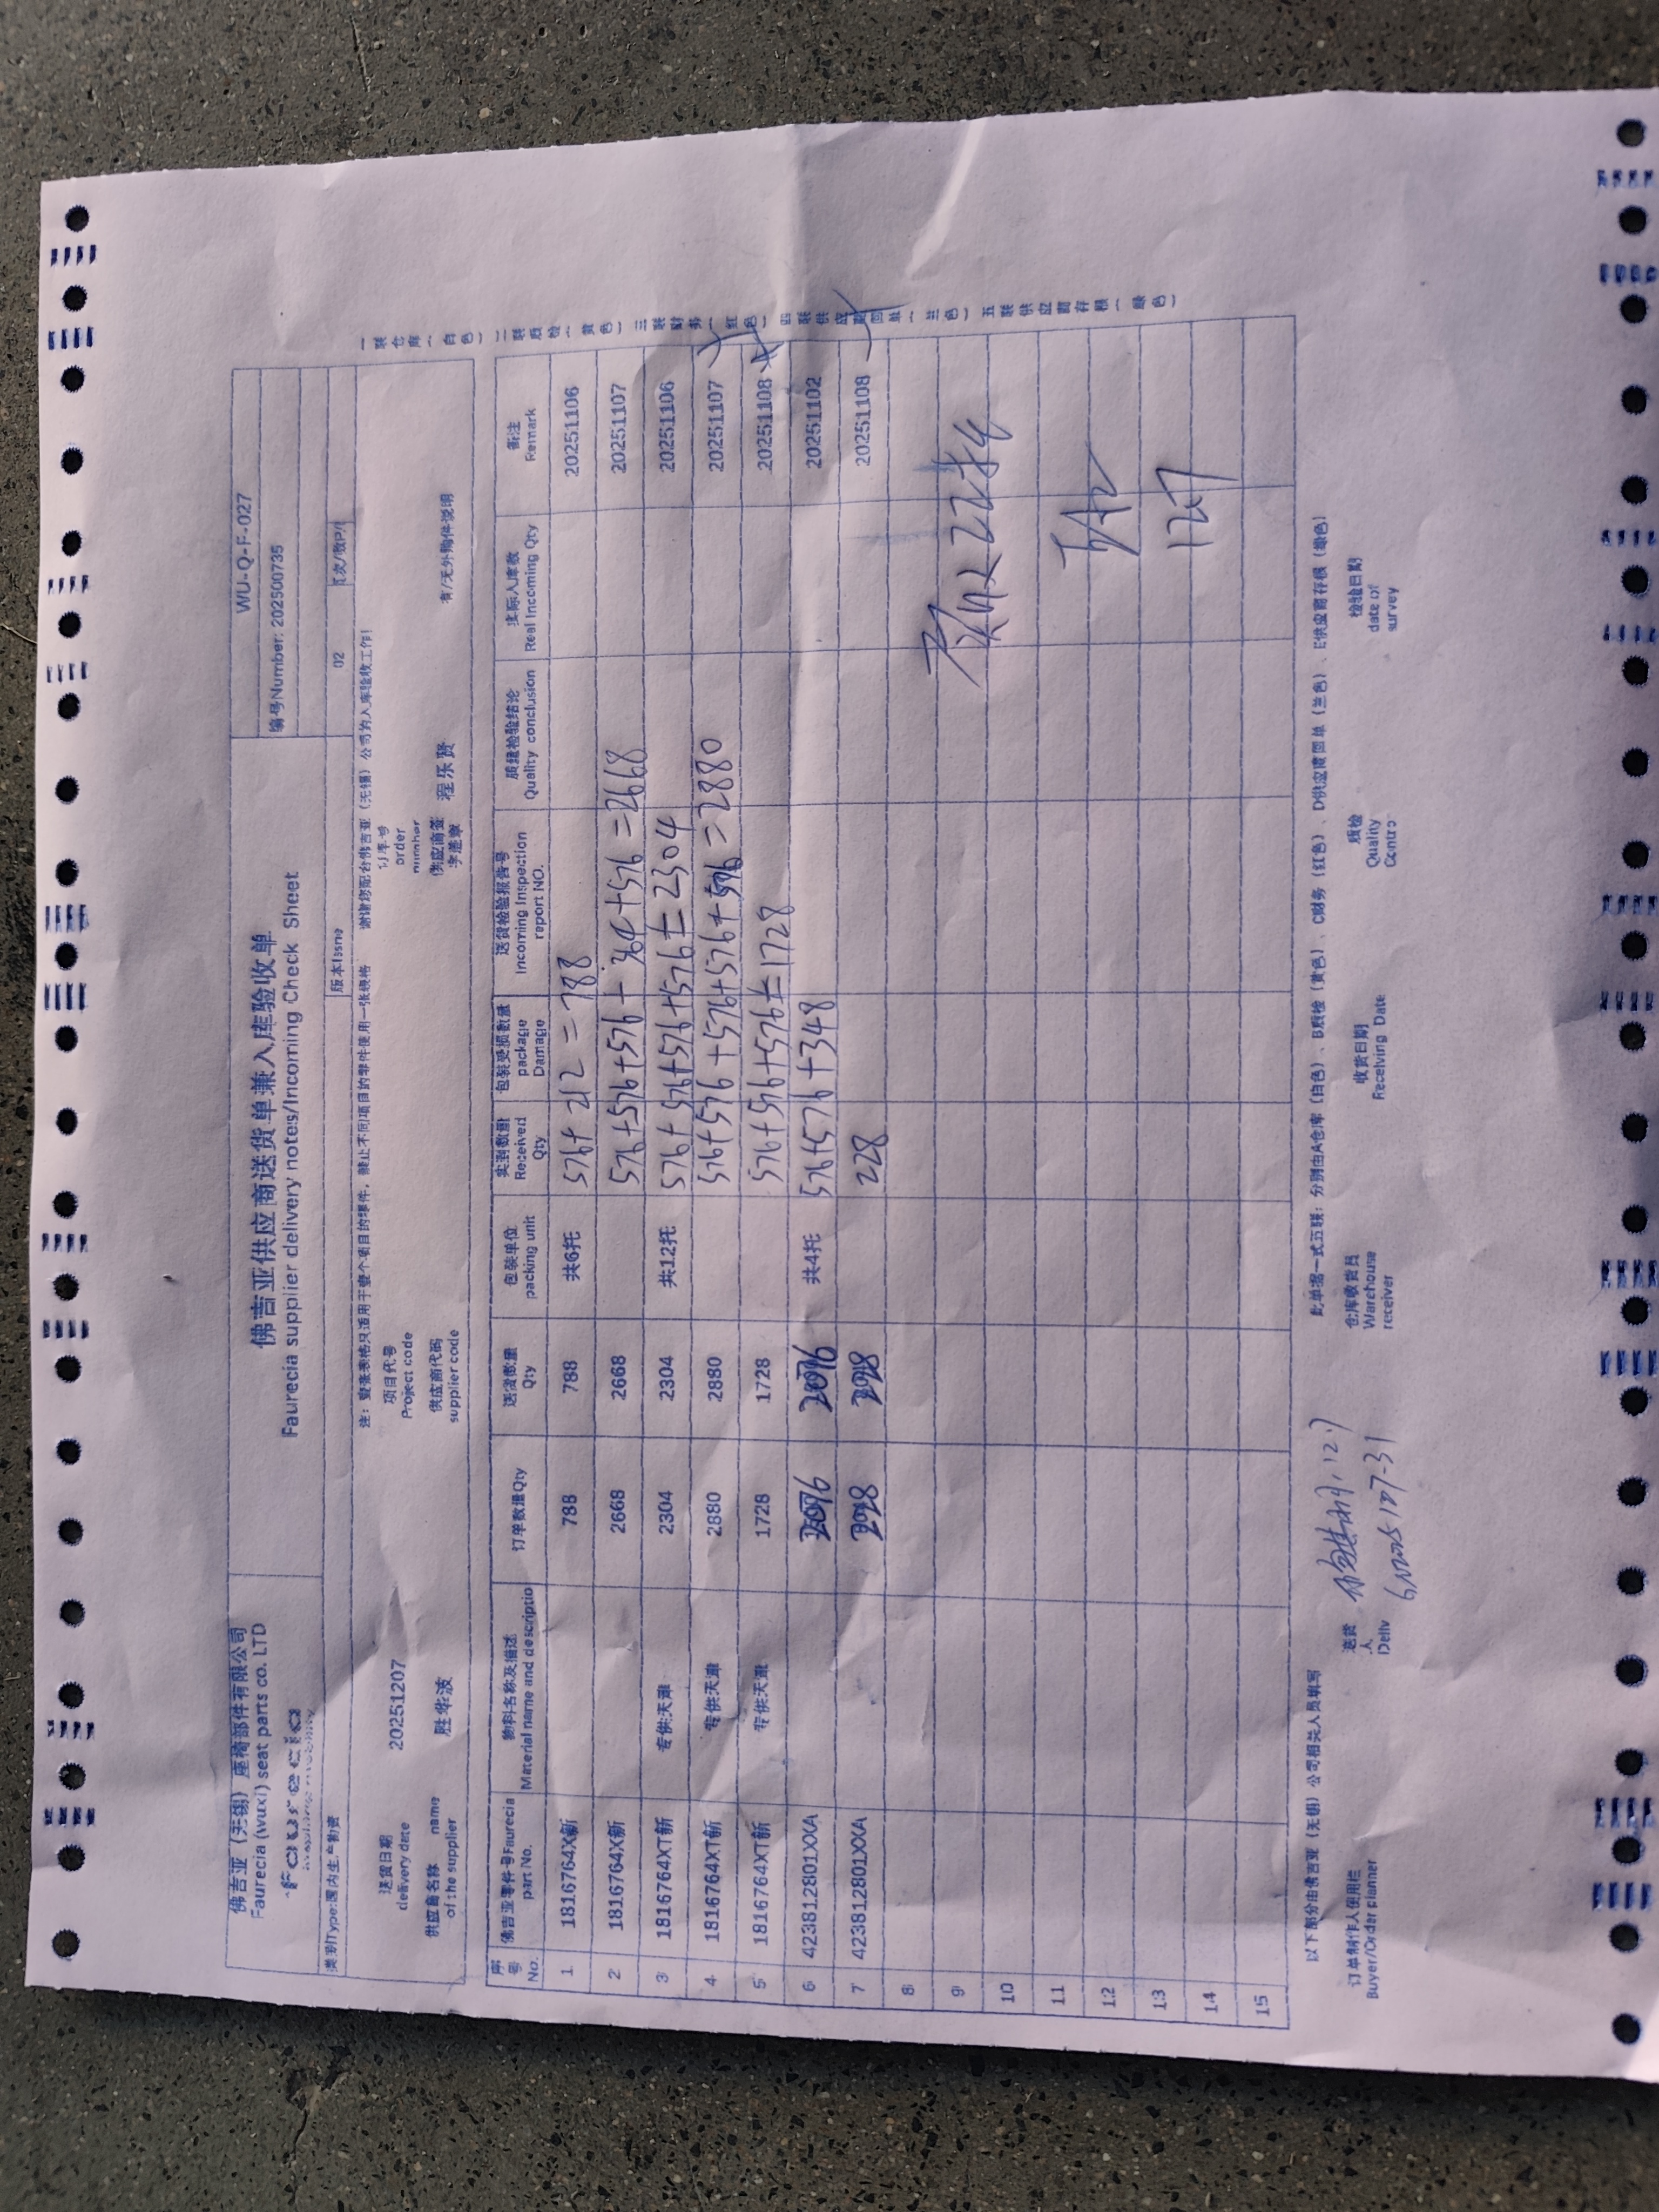 佛吉亚（无锡）座椅部件有限公司
Faurecia (wuxi) seat parts co. LTD
faurecia
佛吉亚供应商送货单兼入库验收单
Faurecia supplier delivery notes/Incoming Check Sheet
WU-Q-F-027
编号Number: 202500735
类别Type:国内生产物资
版本Issne
02
注：壹张表格只适用于壹个项目的零件，禁止不同项目的零件使用一张表格
谢谢您配合佛吉亚（无锡）公司的入库验收工作！
送货日期
delivery date
20251207
项目代号
Project code
订单号
order
number
供应商名称 name
of the supplier
胜华波
供应商代码
supplier code
程乐贤
有/无外购件说明
序号 No.
佛吉亚零件号Faurecia part No.
物料名称及描述 Material name and descriptio
订单数量Qty
送货数量 Qty
包装单位 packing unit
实到数量 Received Qty
包装受损数量 package Damage
送货检验报告号 Incoming Inspection report NO.
质量检验结论 Quality conclusion
实际入库数 Real Incoming Qty
备注 Remark
1 1816764X新 788 788 共6托 576+212=788 20251106
2 1816764X新 2668 2668 576+576+576+364+576=2668 20251107
3 1816764XT新 专供天津 2304 2304 共12托 576+576+576+576=2304 20251106
4 1816764XT新 专供天津 2880 2880 576+576+576+576+576=2880 20251107
5 1816764XT新 专供天津 1728 1728 576+576+576=1728 20251108
6 423812801XXA 共4托 576+576+348 20251102
7 423812801XXA 228 20251108
8
9
10
11
12
13
14
15
22托
一联仓库（白色）二联质检（黄色）三联财务（红色）四联供应商回单（兰色）五联供应商存根（绿色）
以下部分由佛吉亚（无锡）公司相关人员填写
此单据一式五联：分别由A仓库（白色）、B质检（黄色）、C财务（红色）、D供应商回单（兰色）、E供应商存根（绿色）
订单制作人使用栏
Buyer/Order planner
送货人
Deliv
仓库收货员
Warehouse
receiver
收货日期
Receiving Date
质检
Quality
Contro
检验日期
date of
survey